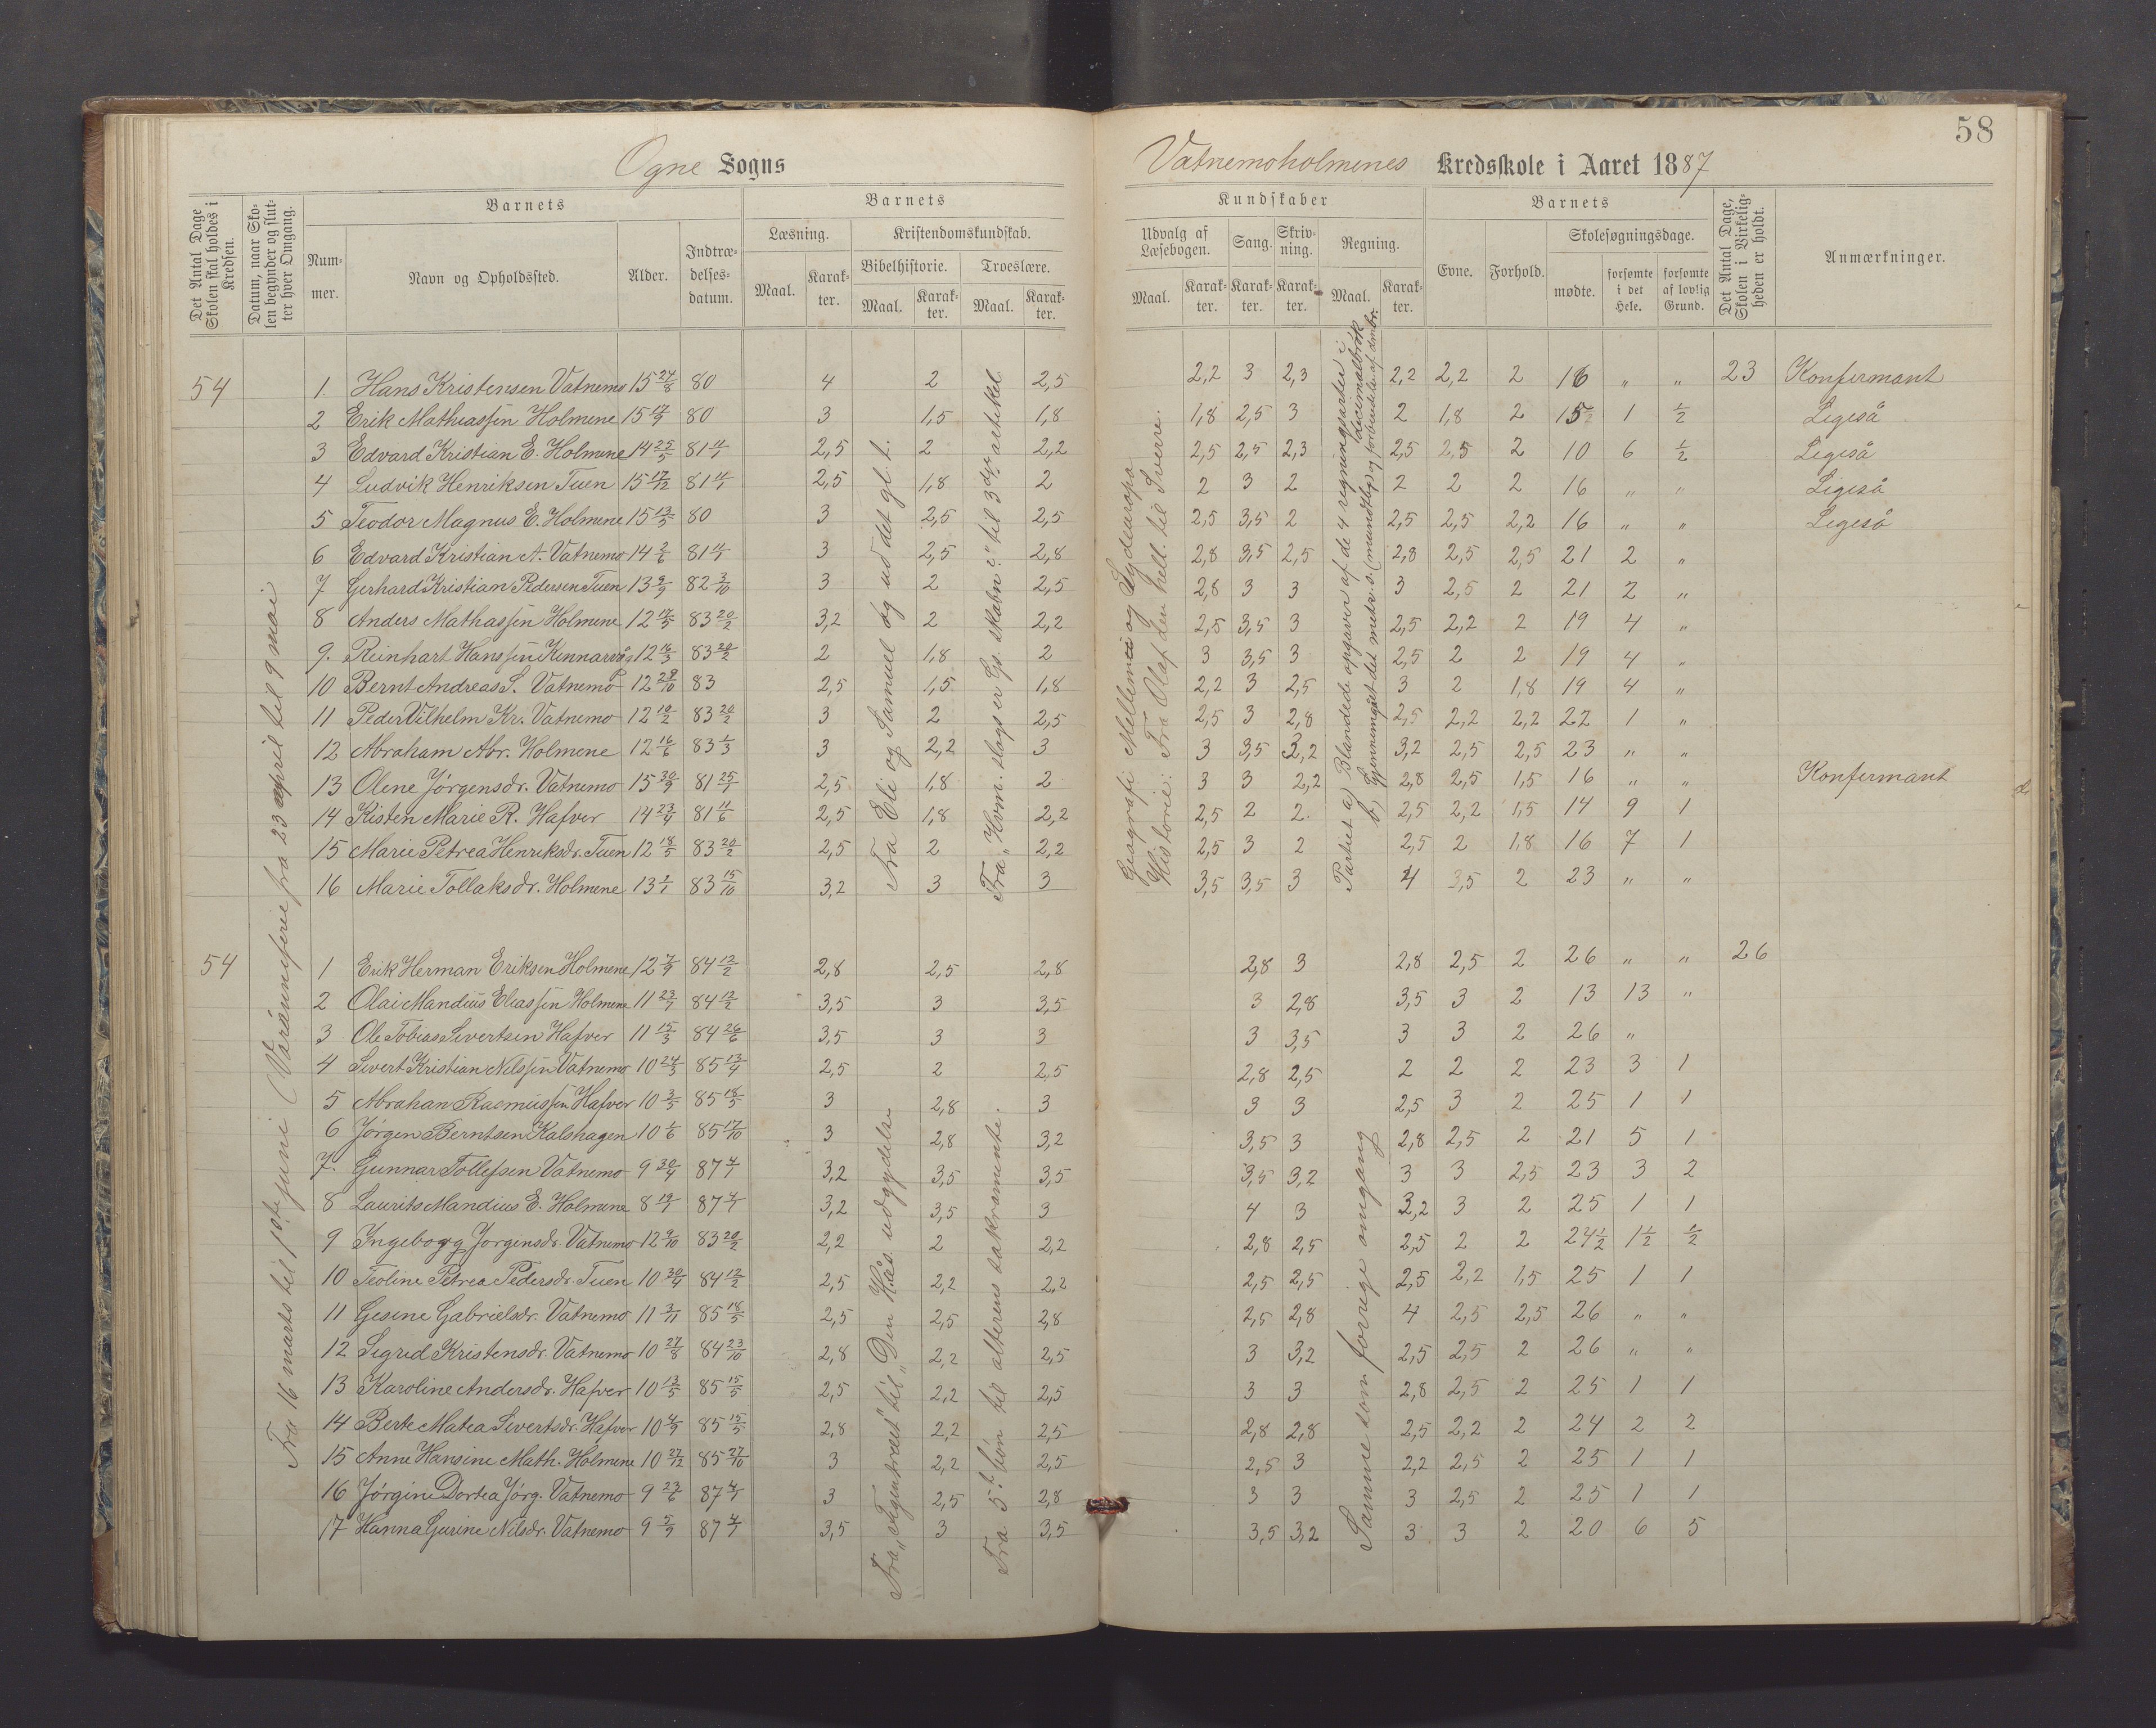 58
Ogne Sogns
Vatnemoholmenes Kredsskole i Aaret 1887
Det Antal Dage Skolen skal holdes i Kredsen.
Datum, naar Skolen begynder og slutter hver Omgang.
Barnets
Nummer.
Navn og Opholdssted.
Alder.
Indtrædelsesdatum.
Barnets
Læsning.
Maal.
Karakter.
Kristendomskundskab.
Bibelhistorie.
Maal.
Karakter.
Troeslære.
Maal.
Karakter.
Kundskaber
Udvalg af Læsebogen.
Maal.
Karakter.
Sang.
Karakter.
Skrivning.
Karakter.
Regning.
Maal.
Karakter.
Barnets
Evne.
Forhold.
Skolesøgningsdage.
mødte.
forsømte i det Hele.
forsømte af lovlig Grund.
Det Antal Dage, Skolen i Virkeligheden er holdt.
Anmærkninger.
54 1. Hans Kristensen Vatnemo 15 24/8 80 4 2 2,5 2,2 3 2,3 2,2 2,2 2 16 " " 23 Konfirmant
2 Erik Mathiassen Holmene 15 17/9 80 3 1,5 1,8 1,8 2,5 3 2 1,8 2 15 1 1/2 Ligeså
3 Edvard Kristian E. Holmene 14 25/5 81 11/1 2,5 2 2,2 2,5 2,5 2,3 2,5 2,5 2 10 6 1/2 Ligeså
4 Ludvik Henriksen Tuen 15 17/12 81 11/1 2,5 1,8 2 2 3 2 2 2 2 16 " " Ligeså
5 Teodor Magnus E. Holmene 15 13/5 80 3 2,5 2,5 2,5 3,5 2 2,5 2,5 2,2 16 " " Ligeså
6 Edvard Kristian A. Vatnemo 14 2/6 81 11/1 3 2,5 2,8 2,8 3,5 2,5 2,8 2,5 2,5 21 2 "
7 Gerhard Kristian Pedersen Tuen 13 9/9 82 3/10 3 2 2,5 2,8 3 3 3 2,5 2 21 2 "
8 Anders Mathassen Holmene 12 17/5 83 20/2 3,2 2 2,2 2,5 3,5 3 2,5 2,2 2 19 4 "
9. Reinhart Hanssen 12 16/3 83 20/2 2 1,8 2 3 3,5 3 2,5 2 2 19 4 "
10 Bernt Andreas S. Vatnemo 12 29/10 83 2,5 1,5 1,8 2,2 3 2,5 3 2 1,8 19 4 "
11 Peder Vilhelm Kr. Vatnemo 12 10/2 83 20/2 3 2 2,5 2,5 3 2,8 2,5 2,2 2,2 22 1 "
12 Abraham Abr. Holmene 12 16/6 83 1/3 3 2,2 3 3 3,5 3,2 3,2 2,5 2,5 23 " "
13 Olene Jørgensdr. Vatnemo 15 30/9 81 25/7 2,5 1,8 2 3 3 2,2 2,8 2,5 1,5 16 " " Konfirmant
14 Kisten Marie R. Hafver 14 23/4 81 11/6 2,5 1,8 2,2 2,5 2 2 2,5 2,2 1,5 14 9 1
15 Marie Petrea Henriksdr. Tuen 12 18/5 83 20/2 2,5 2 2,2 2,5 3 2 2,5 2 1,8 16 7 1
16 Marie Tollaksdr. Holmene 13 1/1 83 15/10 3,2 3 3 3,5 3,5 3 4 3,5 2 23 " "
Fra 16 marts til 1ste juni (Våronnferie fra 23 april til 9 mai
Fra Eli og Samuel og ud det gl. t.
Fra "Hvm. slags er Gs. skabn:" til 3die artikel
Geografi Mellem- og Sydeuropa
Historie: Fra Olaf den hell. til Sverre.
Partiet a) Blandede opgaver af de 4 regningsarter i decimalbrøk
b) Gjennemgåt det metr. s. (mundtlig) og forbindelse af dmbr.
54 1 Erik Herman Eriksen Holmene 12 7/9 84 12/2 2,8 2,5 2,8 2,8 3 2,8 2,5 2 26 " " 26
2 Olai Mandius Eliassen Holmene 11 23/7 84 12/2 3,5 3 3,5 3 2,8 3,5 3 2 13 13 "
3 Ole Tobias Sivertsen Hafver 11 15/3 84 26/6 3,5 3 3 3 3,5 3 3 2 26 "
4 Sivert Kristian Nilssen Vatnemo 10 24/5 85 13/4 2,5 2 2,5 2,8 2,5 2 2 2 23 3 1
5 Abrahan Rasmussen Hafver 10 3/5 85 18/5 3 2,8 3 3 3 2,5 3 2 25 1 1
6 Jørgen Berntsen Kalshagen 10 1/6 85 17/10 3 2,8 3,2 3,5 3 2,8 2,5 2 21 5 1
7. Gunnar Tollefsen Vatnemo 9 30/4 87 4/1 3,2 3,5 3,5 3,5 3,2 3 3 2,5 23 3 2
8 Laurits Mandius E. Holmene 8 19/7 87 4/1 3,2 3,5 3 4 3 3,2 3 2 25 1 1
9 Ingeborg Jørgensdr. Vatnemo 12 9/10 83 20/2 2,2 2 2,2 2,8 2,5 2,5 2 2 24 1/2 1 1/2 1/2
10 Teoline Petrea Pedersdr. Tuen 10 30/4 84 12/2 2,5 2,2 2,2 2,5 2,5 2,5 2,2 1,5 25 1 1
11 Gesine Gabrielsdr. Vatnemo 11 3/11 85 18/5 2,5 2,5 2,8 2,5 2,8 4 2,5 2,5 26 " "
12 Sigrid Kristensdr. Vatnemo 10 27/8 84 23/10 2,8 2,2 2,5 3 3,2 2,5 2,5 2 26 " "
13 Karoline Andersdr. Hafver 10 13/5 85 15/5 2,5 2,2 2,5 3 3 2,8 2,5 2 25 1 1
14 Berte Matea Sivertsdr. Hafver 10 4/9 85 15/5 2,8 2,2 2,5 2,8 2,8 2,5 2,2 2 24 2 2
15 Anne Hansine Math. Holmene 10 27/12 85 27/10 3 2,2 2,5 2,5 3 2,2 2,5 2 25 1 1
16 Jørgine Dortea Jørg. Vatnemo 9 23/6 87 4/1 3 2,5 2,8 3 3 3 2,5 2 25 1 1
17 Hanna Gurine Nilsdr. Vatnemo 9 5/9 87 4/1 3,5 3 3,5 3,5 3,2 3 3 2 20 6 5
Fra "Figentræet" til "Den Hås udgydelse
Fra 5te bøn til alterens sakramente.
Samme som forrige omgang